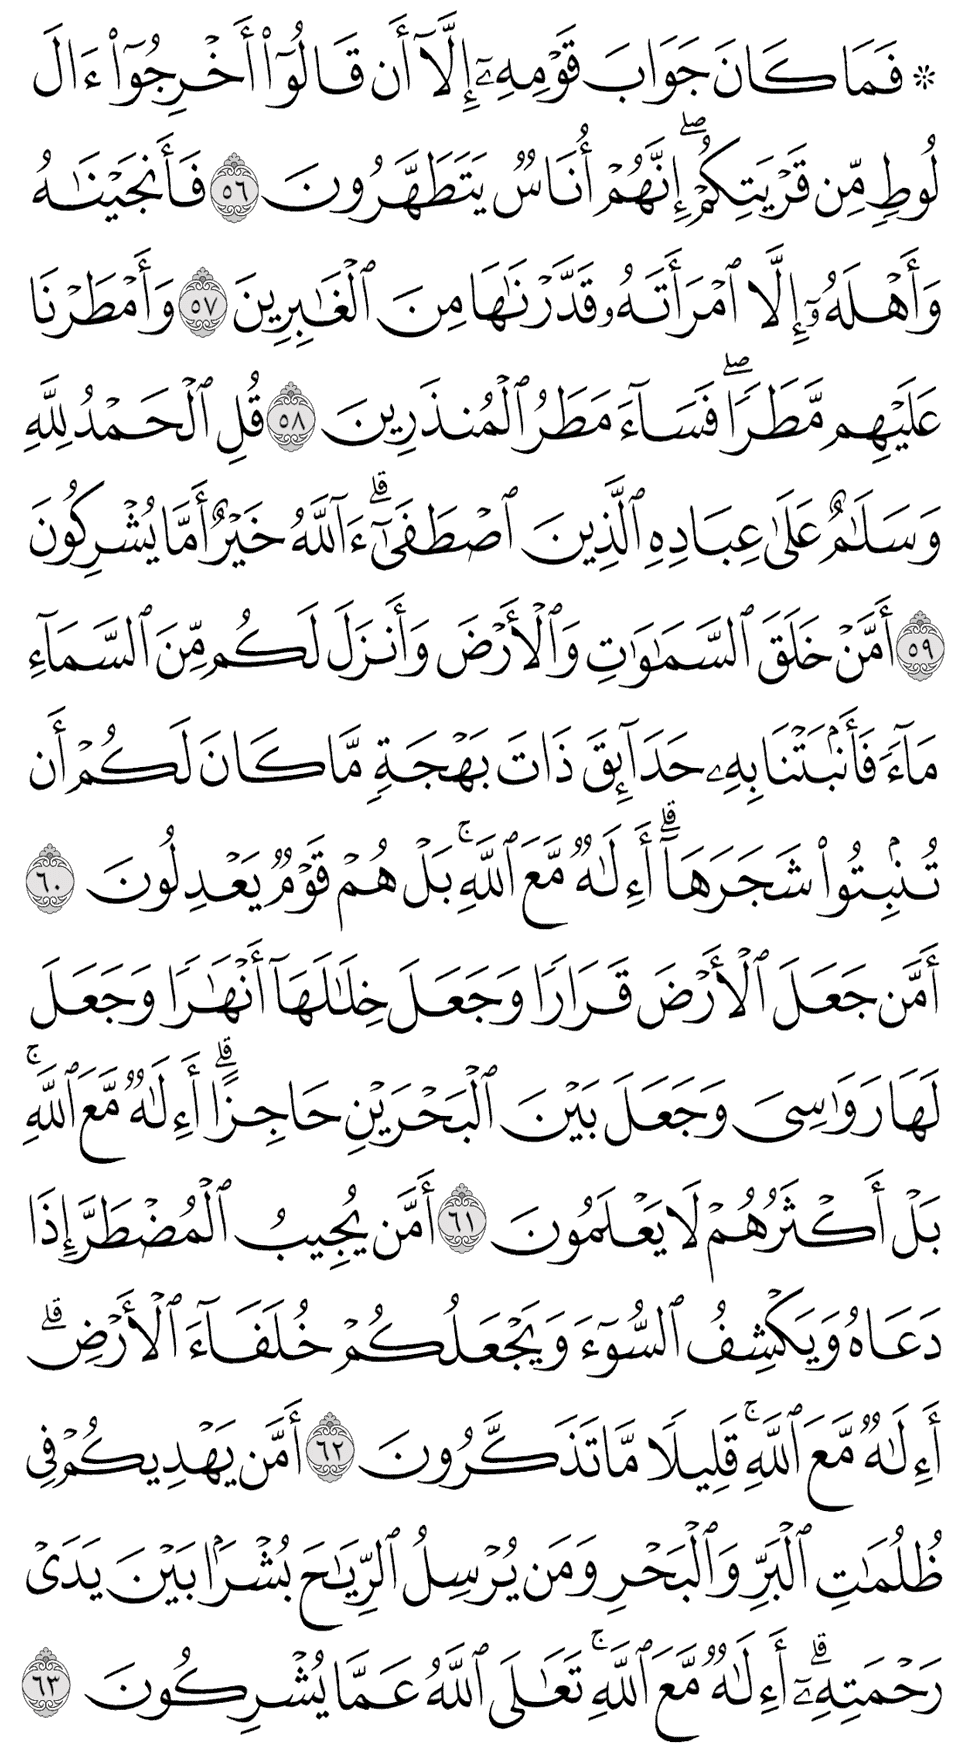 ۞ فَمَا كَانَ جَوَابَ قَوْمِهِۦٓ إِلَّآ أَن قَالُوٓا۟ أَخْرِجُوٓا۟ ءَالَ
لُوطٍ مِّن قَرْيَتِكُمْ ۖ إِنَّهُمْ أُنَاسٌ يَتَطَهَّرُونَ ٥٦ فَأَنجَيْنَٰهُ
وَأَهْلَهُۥٓ إِلَّا ٱمْرَأَتَهُۥ قَدَّرْنَٰهَا مِنَ ٱلْغَٰبِرِينَ ٥٧ وَأَمْطَرْنَا
عَلَيْهِم مَّطَرًا ۖ فَسَآءَ مَطَرُ ٱلْمُنذَرِينَ ٥٨ قُلِ ٱلْحَمْدُ لِلَّهِ
وَسَلَٰمٌ عَلَىٰ عِبَادِهِ ٱلَّذِينَ ٱصْطَفَىٰٓ ۗ ءَآللَّهُ خَيْرٌ أَمَّا يُشْرِكُونَ
٥٩ أَمَّنْ خَلَقَ ٱلسَّمَٰوَٰتِ وَٱلْأَرْضَ وَأَنزَلَ لَكُم مِّنَ ٱلسَّمَآءِ
مَآءً فَأَنۢبَتْنَا بِهِۦ حَدَآئِقَ ذَاتَ بَهْجَةٍ مَّا كَانَ لَكُمْ أَن
تُنۢبِتُوا۟ شَجَرَهَآ ۗ أَءِلَٰهٌ مَّعَ ٱللَّهِ ۚ بَلْ هُمْ قَوْمٌ يَعْدِلُونَ ٦٠
أَمَّن جَعَلَ ٱلْأَرْضَ قَرَارًا وَجَعَلَ خِلَٰلَهَآ أَنْهَٰرًا وَجَعَلَ
لَهَا رَوَٰسِىَ وَجَعَلَ بَيْنَ ٱلْبَحْرَيْنِ حَاجِزًا ۗ أَءِلَٰهٌ مَّعَ ٱللَّهِ ۚ
بَلْ أَكْثَرُهُمْ لَا يَعْلَمُونَ ٦١ أَمَّن يُجِيبُ ٱلْمُضْطَرَّ إِذَا
دَعَاهُ وَيَكْشِفُ ٱلسُّوٓءَ وَيَجْعَلُكُمْ خُلَفَآءَ ٱلْأَرْضِ ۗ
أَءِلَٰهٌ مَّعَ ٱللَّهِ ۚ قَلِيلًا مَّا تَذَكَّرُونَ ٦٢ أَمَّن يَهْدِيكُمْ فِى
ظُلُمَٰتِ ٱلْبَرِّ وَٱلْبَحْرِ وَمَن يُرْسِلُ ٱلرِّيَٰحَ بُشْرًۢا بَيْنَ يَدَىْ
رَحْمَتِهِۦٓ ۗ أَءِلَٰهٌ مَّعَ ٱللَّهِ ۚ تَعَٰلَى ٱللَّهُ عَمَّا يُشْرِكُونَ ٦٣